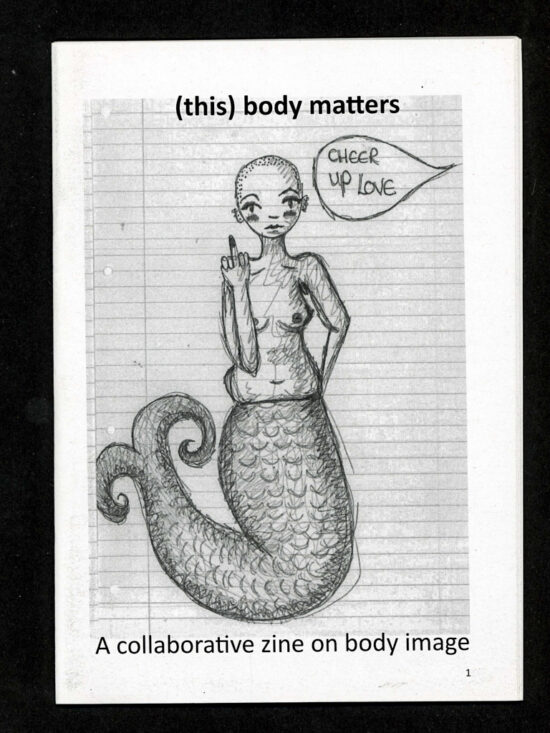 (this) body matters
CHEER
UP LOVE
A collaborative zine on body image
1